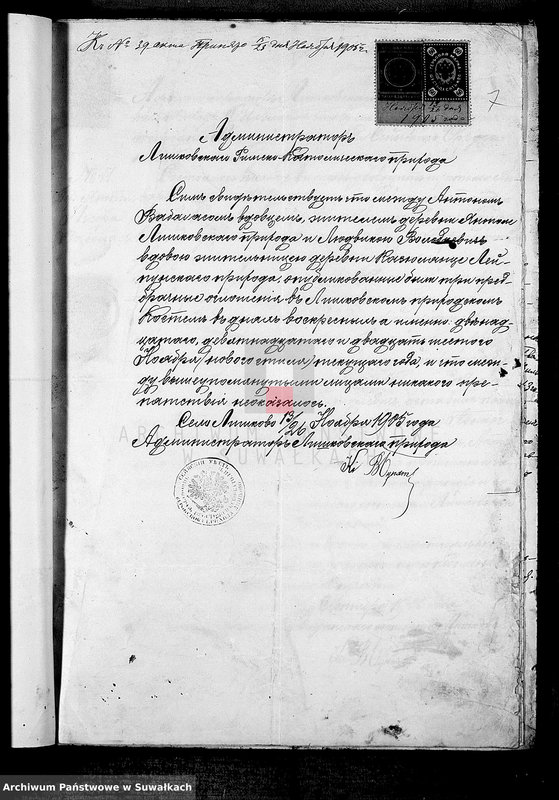 Къ № 39 акта Принято 13/26 дня Ноября 1905 г.
7
Ноября 13/26 дня
1905 года
Администраторъ
Лишковскаго Римско-Католическаго прихода
Симъ свидѣтельствуетъ что между Антономъ
вдовцемъ, жителемъ деревни
Лишковскаго прихода и Людвикою
вдовою жительницею деревни
прихода, опубликованные были три пред-
брачные оглошенія въ Лишковскомъ приходскомъ
Костелѣ въ дняхъ воскресныхъ а именно: двѣнад-
цатаго, девятнадцатаго и двадцать шестого
Ноября (новаго стиля) текущаго года и что меж-
ду вышеупомянутыми лицами никакого пре-
пятствія неоказалось.
Село Лишково 13/26 Ноября 1905 года
Администраторъ Лишковскаго прихода
Кс.
ARCHIWUM
W SUWAŁKACH
Archiwum Państwowe w Suwałkach